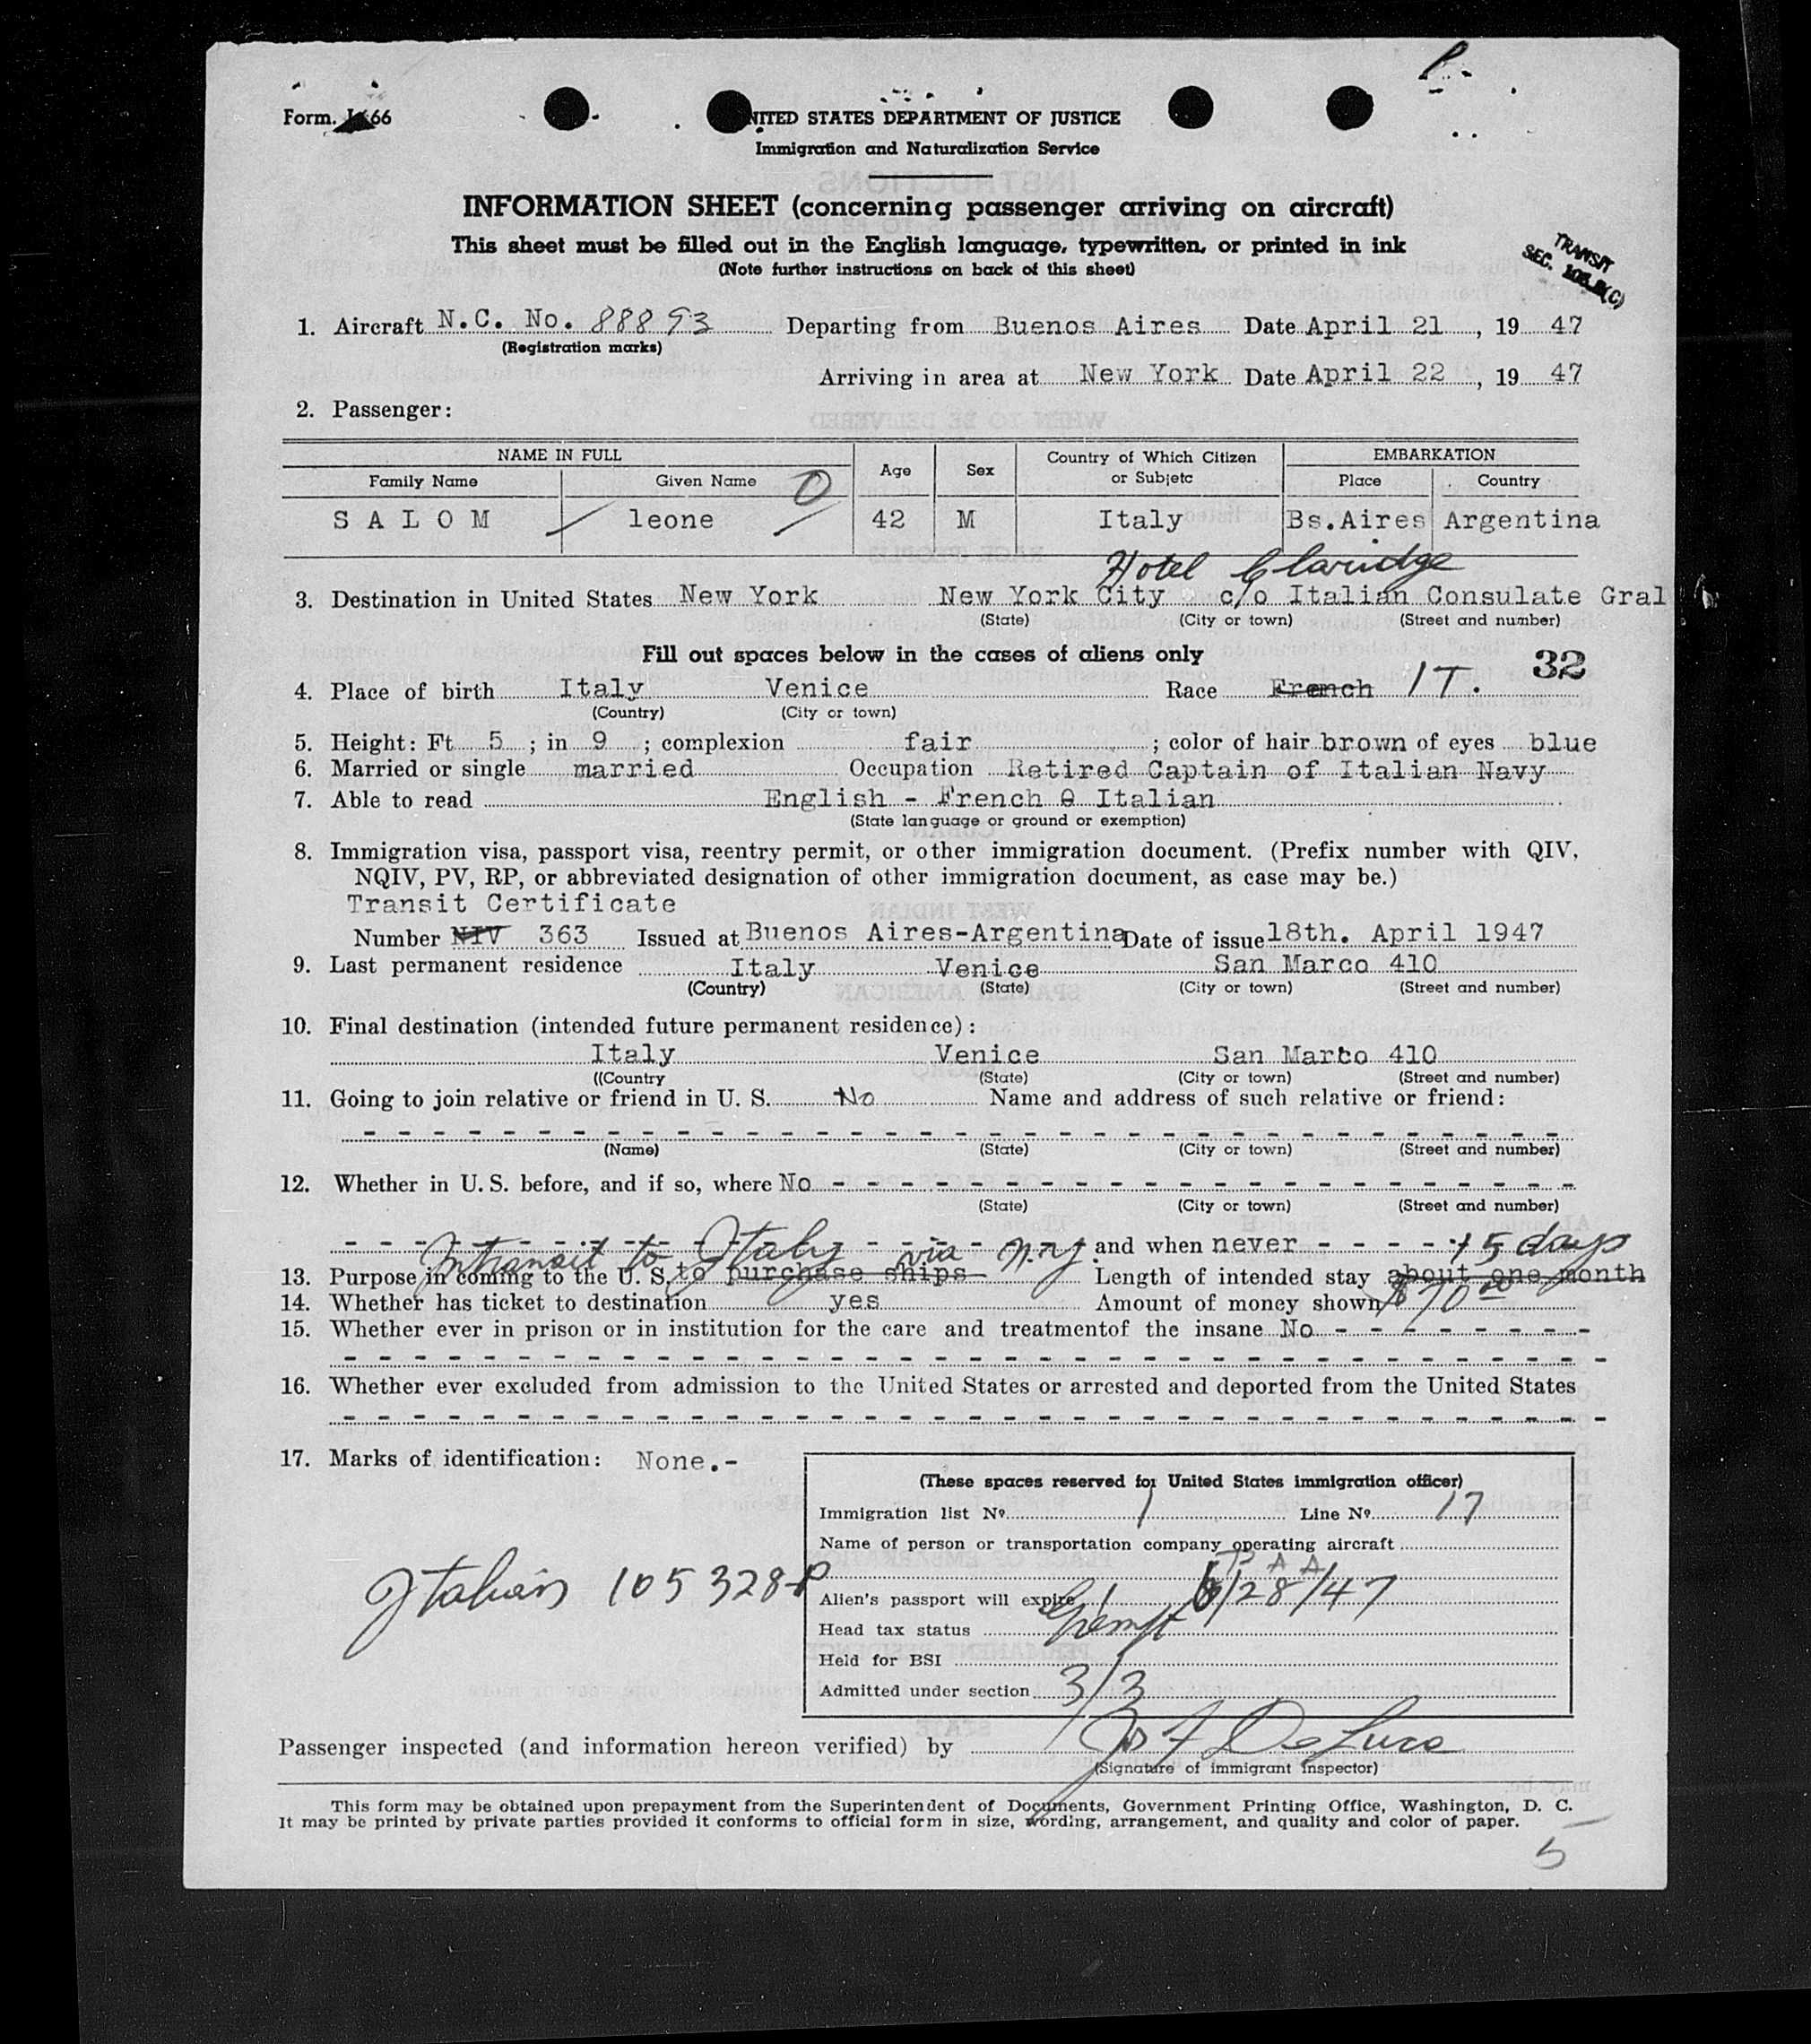 Form. I-466
UNITED STATES DEPARTMENT OF JUSTICE
Immigration and Naturalization Service
INFORMATION SHEET (concerning passenger arriving on aircraft)
This sheet must be filled out in the English language, typewritten, or printed in ink
(Note further instructions on back of this sheet)
TRANSIT
SEC.
1. Aircraft N.C. No. 88893 Departing from Buenos Aires Date April 21, 19 47
(Registration marks)
Arriving in area at New York Date April 22, 19 47
2. Passenger:
NAME IN FULL Age Sex Country of Which Citizen or Subjetc EMBARKATION
Family Name Given Name Place Country
0
SALOM leone 42 M Italy Bs.Aires Argentina
Hotel Claridge
3. Destination in United States New York New York City c/o Italian Consulate Gral
(State) (City or town) (Street and number)
Fill out spaces below in the cases of aliens only
32
4. Place of birth Italy Venice Race French IT.
(Country) (City or town)
5. Height: Ft 5 ; in 9 ; complexion fair ; color of hair brown of eyes blue
6. Married or single married Occupation Retired Captain of Italian Navy
7. Able to read English - French & Italian
(State language or ground or exemption)
8. Immigration visa, passport visa, reentry permit, or other immigration document. (Prefix number with QIV,
NQIV, PV, RP, or abbreviated designation of other immigration document, as case may be.)
Transit Certificate
Number NIV 363 Issued at Buenos Aires-Argentina Date of issue 18th. April 1947
9. Last permanent residence Italy Venice San Marco 410
(Country) (State) (City or town) (Street and number)
10. Final destination (intended future permanent residence):
Italy Venice San Marco 410
((Country (State) (City or town) (Street and number)
11. Going to join relative or friend in U. S. No Name and address of such relative or friend:
(Name) (State) (City or town) (Street and number)
12. Whether in U. S. before, and if so, where No
(State) (City or town) (Street and number)
and when never
Intransit to Italy via N.Y. 15 days
13. Purpose in coming to the U. S. to purchase ships Length of intended stay about one month
14. Whether has ticket to destination yes Amount of money shown $70.00
15. Whether ever in prison or in institution for the care and treatmentof the insane No
16. Whether ever excluded from admission to the United States or arrested and deported from the United States
17. Marks of identification: None.-
(These spaces reserved for United States immigration officer)
Immigration list Nº 1 Line Nº 17
Name of person or transportation company operating aircraft
P A A
Italian 105328-P
Alien's passport will expire 6/28/47
Head tax status Exempt
Held for BSI
Admitted under section 3/3
Passenger inspected (and information hereon verified) by
(Signature of immigrant inspector)
This form may be obtained upon prepayment from the Superintendent of Documents, Government Printing Office, Washington, D. C.
It may be printed by private parties provided it conforms to official form in size, wording, arrangement, and quality and color of paper.
5